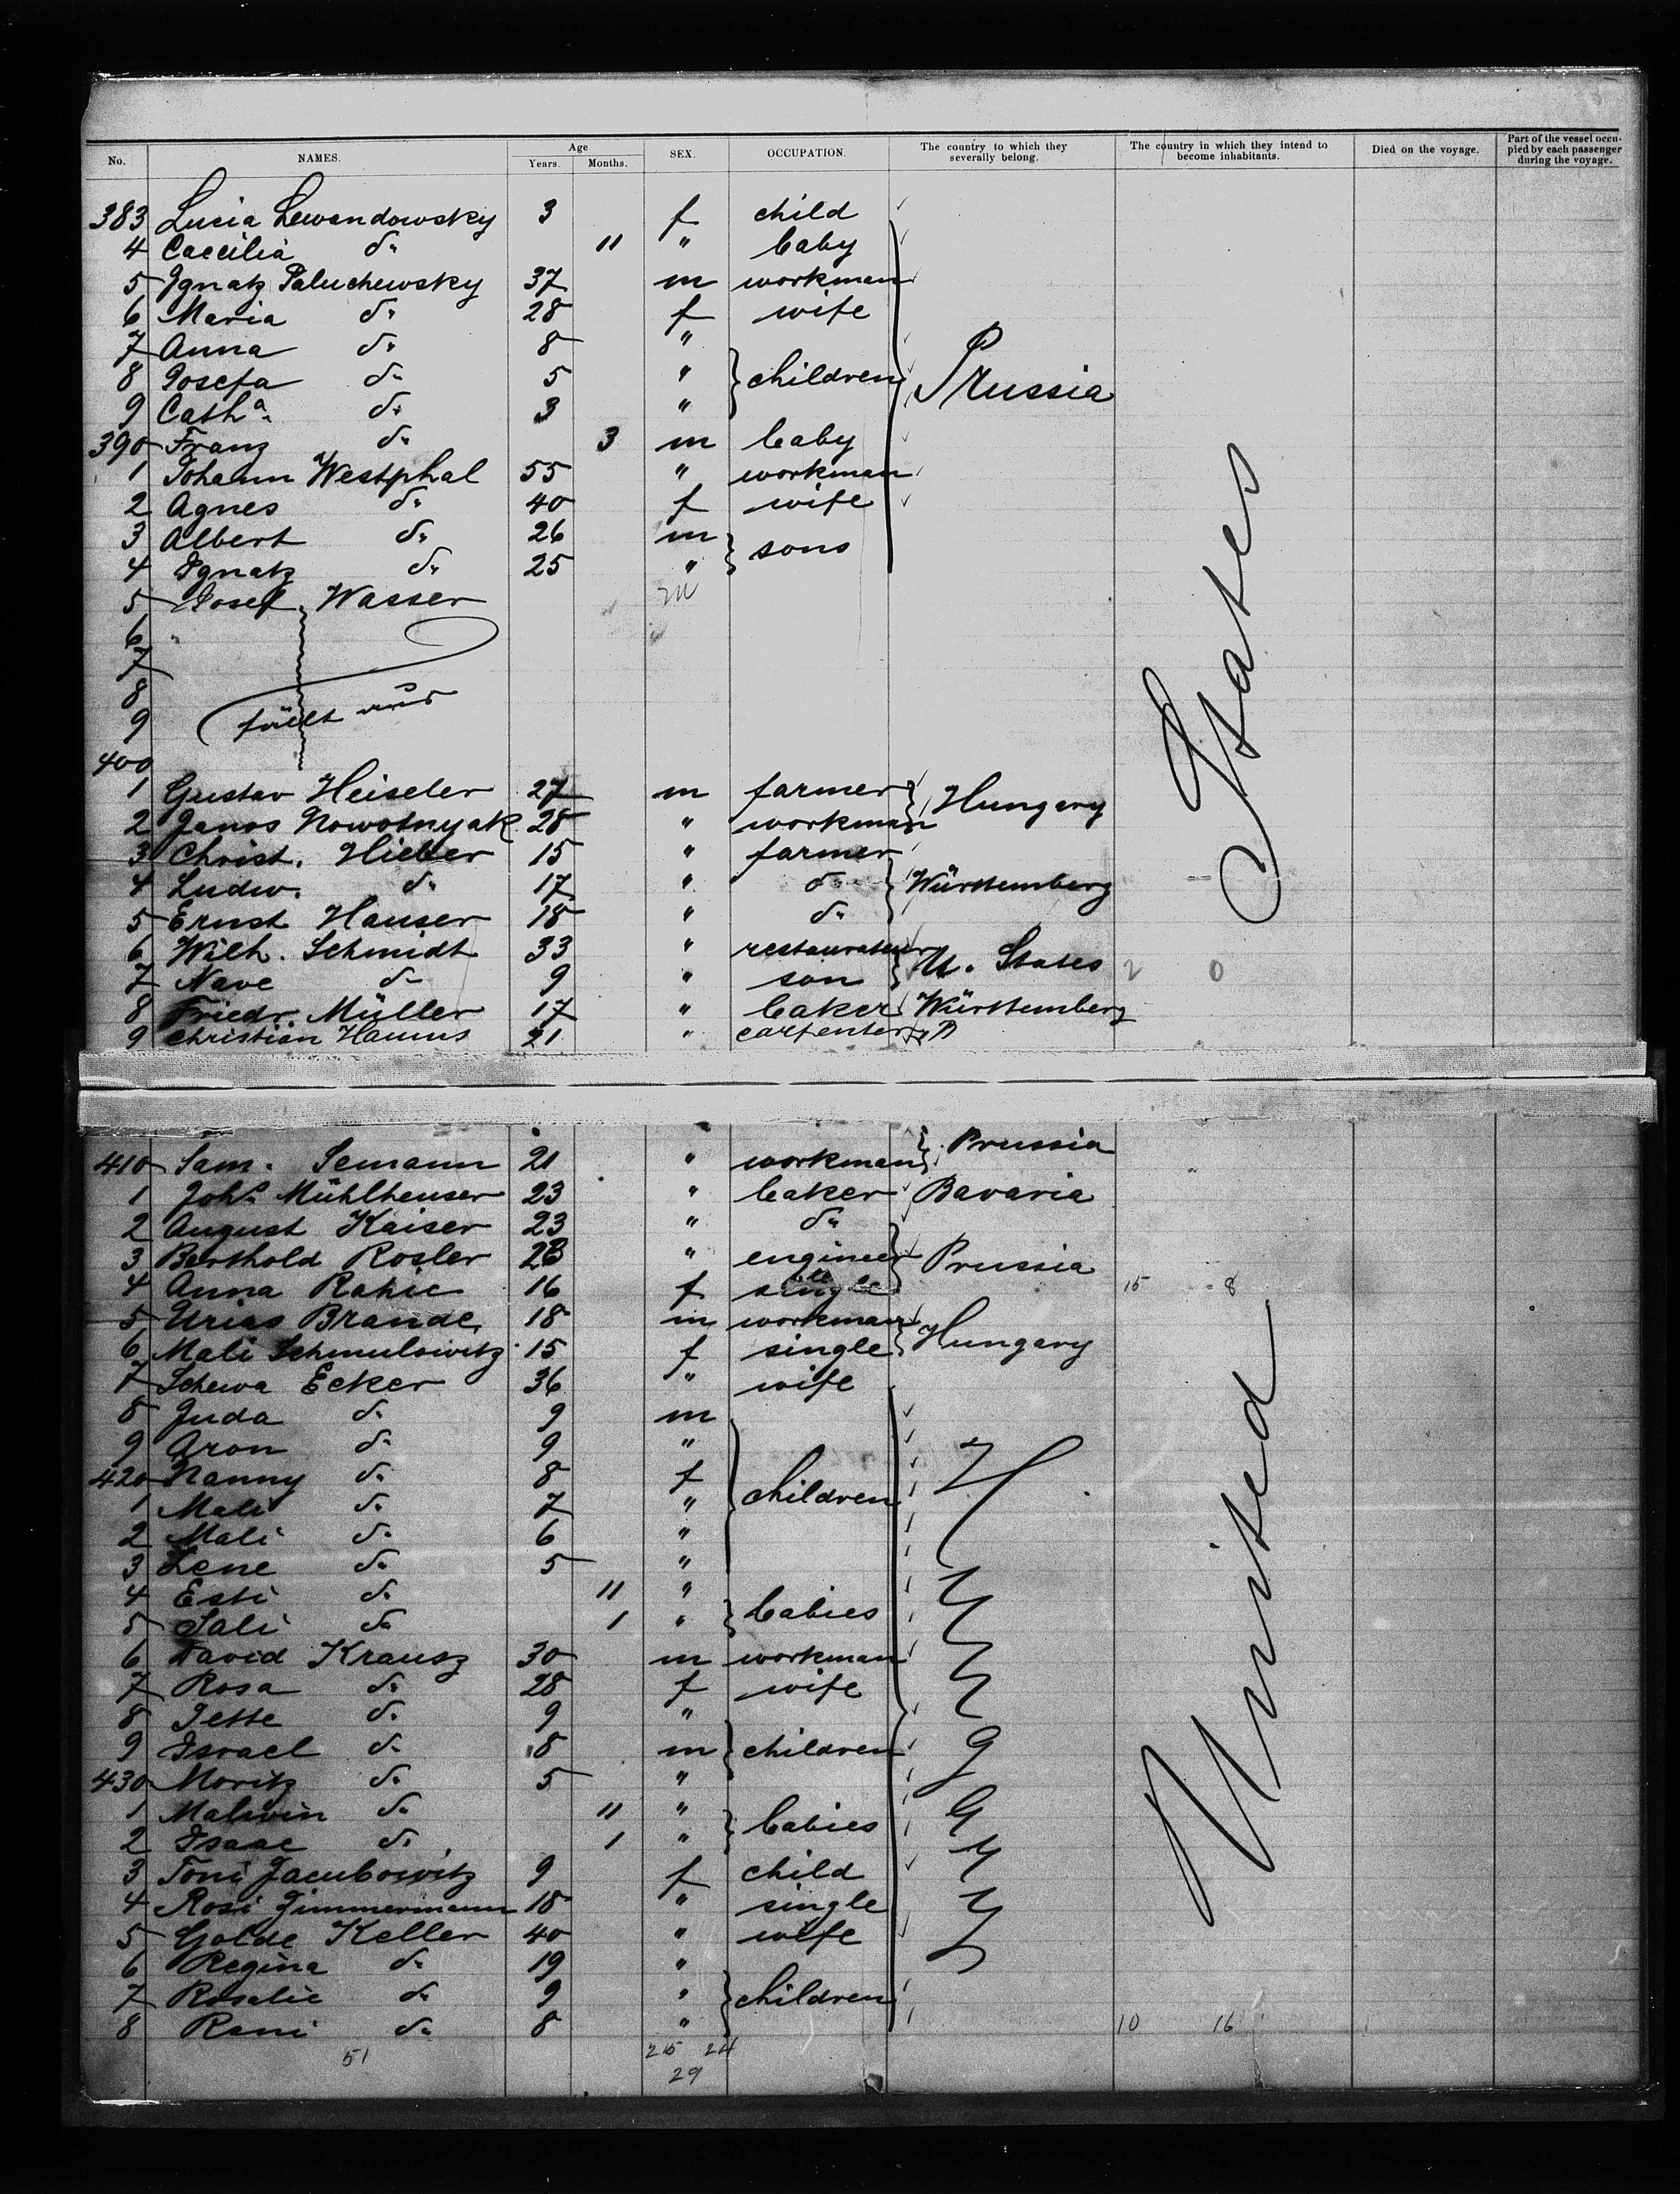 No. NAMES. Age Years. Months. SEX. OCCUPATION. The country to which they severally belong. The country in which they intend to become inhabitants. Died on the voyage. Part of the vessel occupied by each passenger during the voyage.
383 Lusia Lewandowsky 3 f child
4 Caecilia do 11 " baby
5 Ignatz Paluchewsky 37 m workman
6 Maria do 28 f wife
7 Anna do 8 "
8 Josefa do 5 " children Prussia
9 Catha. do 3 "
390 Franz do 3 m baby
1 Johann Westphal 55 " workman
2 Agnes do 40 f wife
3 Albert do 26 m sons
4 Ignatz do 25 "
5 Josef Wasser m
6 "
7
8
9 fällt aus
400
1 Gustav Heiseler 27 m farmer Hungary
2 Janos Nowotnyak 28 " workman
3 Christ. Hieber 15 " farmer
4 Ludw. do 17 " do Württemberg
5 Ernst Hauser 18 " do
6 Wilh. Schmidt 33 " restaurateur U. States
7 Nave do 9 " son 2 0
8 Friedr. Müller 17 " baker Württemberg
9 Christian Hamms 21 " carpenter
410 Sam. Semann 21 " workman Prussia
1 Johs. Mühlheuser 23 " baker Bavaria
2 August Kaiser 23 " do
3 Berthold Rosler 28 " engineer Prussia
4 Anna Rahie 16 f single 15 8
5 Urias Brande 18 m workman Hungary
6 Mali Schmulowitz 15 f single
7 Schewa Ecker 36 " wife
8 Juda do 9 m
9 Aron do 9 "
420 Nanny do 8 f children
1 Mali do 7 "
2 Mali do 6 "
3 Lene do 5 "
4 Esti do 11 " babies
5 Sali do 1 "
6 David Krausz 30 m workman
7 Rosa do 28 f wife
8 Jette do 9 "
9 Israel do 8 m children
430 Moritz do 5 "
1 Malwin do 11 " babies
2 Isaac do 1 "
3 Toni Jacubowitz 9 f child
4 Rosi Zimmermann 18 " single
5 Golde Keller 40 " wife
6 Regina do 19 "
7 Rosalie do 9 " children
8 Reni do 8 " 10 16
51 25 24
29
United States